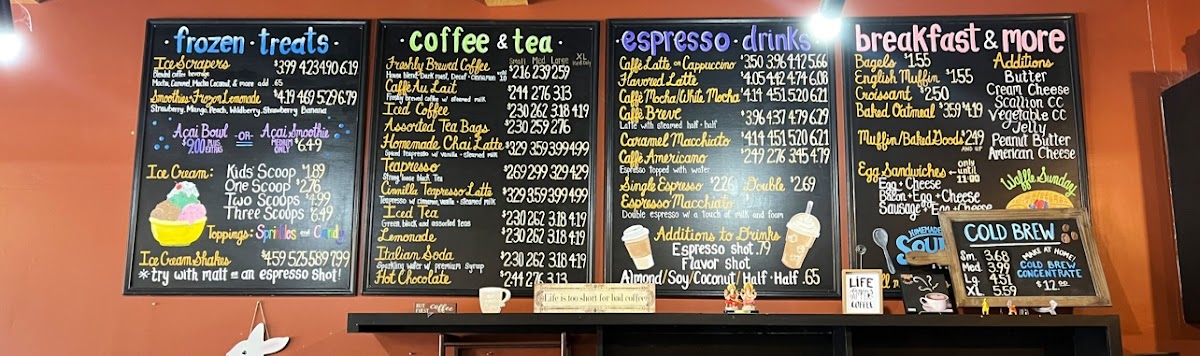 frozen · treats
Ice Scrapers $3.99 4.23 4.90 6.19
Blended coffee beverage
Mocha, Caramel, Mocha Caramel, & more add .65
Smoothies · Frozen Lemonade $4.19 4.69 5.29 6.79
Strawberry, Mango, Peach, Wildberry, Strawberry Banana
Açai Bowl -OR- Açai Smoothie
9.00 MEDIUM ONLY $6.49
Ice Cream: Kids' Scoop $1.89
One Scoop $2.76
Two Scoops $4.99
Three Scoops $6.49
Toppings: Sprinkles and Candy
Ice Cream Shakes $4.59 5.25 5.89 7.99
*try with malt or an espresso shot!
coffee & tea
Small Med Large XL
Freshly Brewed Coffee $2.16 2.39 2.59
House blend, Dark roast, Decaf
Caffé Au Lait $2.44 2.76 3.13
Freshly brewed coffee w/ steamed milk
Iced Coffee $2.30 2.62 3.18 4.19
Assorted Tea Bags $2.30 2.59 2.76
Homemade Chai Latte $3.29 3.59 3.99 4.99
Spiced teapresso w/ vanilla + steamed milk
Teapresso $2.69 2.99 3.29 4.29
Strong loose black Tea
Cinnilla Teapresso Latte $3.29 3.59 3.99 4.99
Teapresso w/ cinnamon, vanilla + steamed milk
Iced Tea $2.30 2.62 3.18 4.19
Green, black, and assorted teas
Lemonade $2.30 2.62 3.18 4.19
Italian Soda $2.30 2.62 3.18 4.19
Sparkling water w/ premium syrup
Hot Chocolate $2.44 2.76 3.13
espresso · drinks
Caffé Latte or Cappuccino $3.50 3.96 4.42 5.66
Flavored Latte $4.05 4.42 4.74 6.08
Caffé Mocha/White Mocha $4.14 4.51 5.20 6.21
Caffé Breve $3.96 4.37 4.79 6.29
Latte with steamed half + half
Caramel Macchiato $4.14 4.51 5.20 6.21
Caffé Americano $2.49 2.76 3.45 4.79
Espresso topped with water
Single Espresso $2.26 Double $2.69
Espresso Macchiato
Double espresso w/ a touch of milk and foam
Additions to Drinks
Espresso Shot .79
Flavor Shot
Almond/Soy/Coconut/Half + Half .65
breakfast & more
Bagels $1.55
English Muffin $1.55
Croissant $2.50
Baked Oatmeal $3.59 4.19
Muffin/Baked Goods $2.49
AND UP
Egg Sandwiches only until 11:00
Egg + Cheese
Bacon + Egg + Cheese
Sausage + Egg + Cheese
Additions
Butter
Cream Cheese
Scallion CC
Vegetable CC
Jelly
Peanut Butter
American Cheese
Waffle Sunday
HOMEMADE
SOUP
COLD BREW
Sm. 3.68
Med 3.99
L 4.51
XL 5.59
MAKE AT HOME!
COLD BREW
CONCENTRATE
$12.00
BUT FIRST coffee
Life is too short for bad coffee
LIFE
AFTER
COFFEE